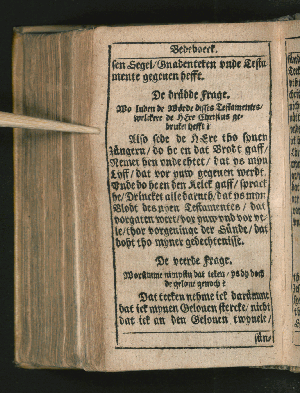 Bedeboeck.
sen Segel/Gnadenteken vnde Testa
mente gegeuen hefft.
De drüdde Frage.
Wo luden de Wörde disses Testamentes/
welckere de HEre Christus ge-
bruket hefft?
Also sede de HEre tho synen
Jüngern/ do he en dat Brodt gaff/
Nemet hen vnde ethet/ dat ys myn
Lyff/ dat vor yuw gegeuen werdt.
Vnde do he en den Kelck gaff/ sprack
he/ Drincket alle daruth/ dat ys myn
Blodt des nyen Testamentes/ dat
vorgaten wert/ vor yuw vnd vor ve-
le/ thor vorgeuinge der Sünde/ dat
doht tho myner gedechtenisse.
De veerde Frage.
Worümme nimpstu dat teken/ ys dy doch
de gelone genoch?
Dat teeken nehme ick darümme/
dat ick mynen Gelouen stercke/ nicht
dat ick an den Gelouen twyuele/